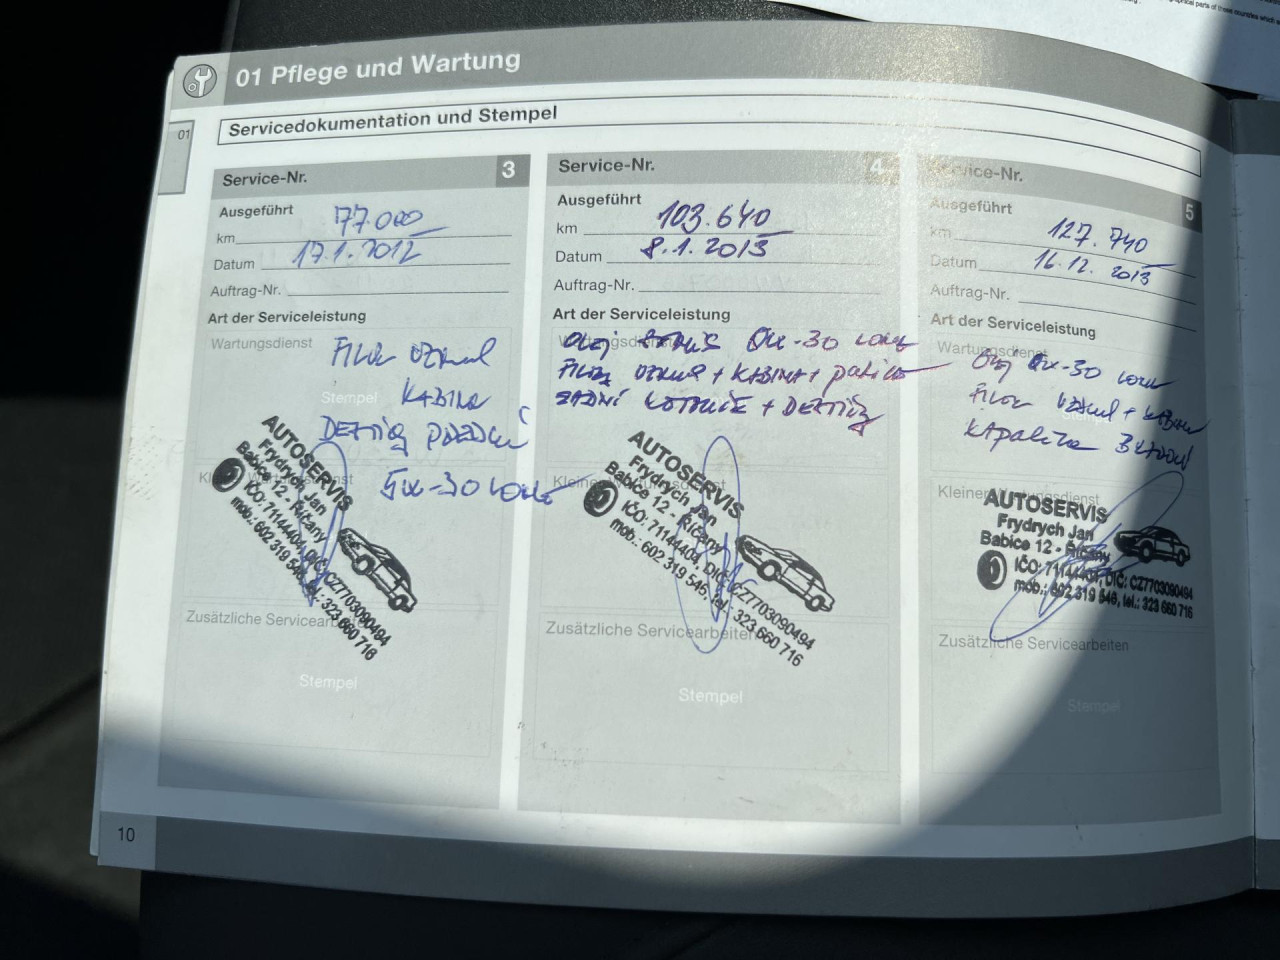 01 Pflege und Wartung
01
Servicedokumentation und Stempel
Service-Nr. 3
Ausgeführt
km 77.000
Datum 17.1.2012
Auftrag-Nr.
Art der Serviceleistung
Wartungsdienst
Stempel
KABINA
5W-30
AUTOSERVIS
Frydrych Jan
Babice 12 - Říčany
IČO: 71144404, DIČ: CZ7703090494
mob.: 602 319 546, tel.: 323 660 716
Zusätzliche Servicearbeiten
Stempel
Service-Nr. 4
Ausgeführt
km 103.640
Datum 8.1.2013
Auftrag-Nr.
Art der Serviceleistung
Wartungsdienst
5W-30
+ KABINA +
ZADNÍ KOTOUČE + DESTIČKY
Kleiner Wartungsdienst
AUTOSERVIS
Frydrych Jan
Babice 12 - Říčany
IČO: 71144404, DIČ: CZ7703090494
mob.: 602 319 546, tel.: 323 660 716
Zusätzliche Servicearbeiten
Stempel
Service-Nr. 5
Ausgeführt
km 127.740
Datum 16.12.2013
Auftrag-Nr.
Art der Serviceleistung
Wartungsdienst
5W-30
KAPALINA
Kleiner Wartungsdienst
AUTOSERVIS
Frydrych Jan
Babice 12 - Říčany
IČO: 71144404, DIČ: CZ7703090494
mob.: 602 319 546, tel.: 323 660 716
Zusätzliche Servicearbeiten
Stempel
10